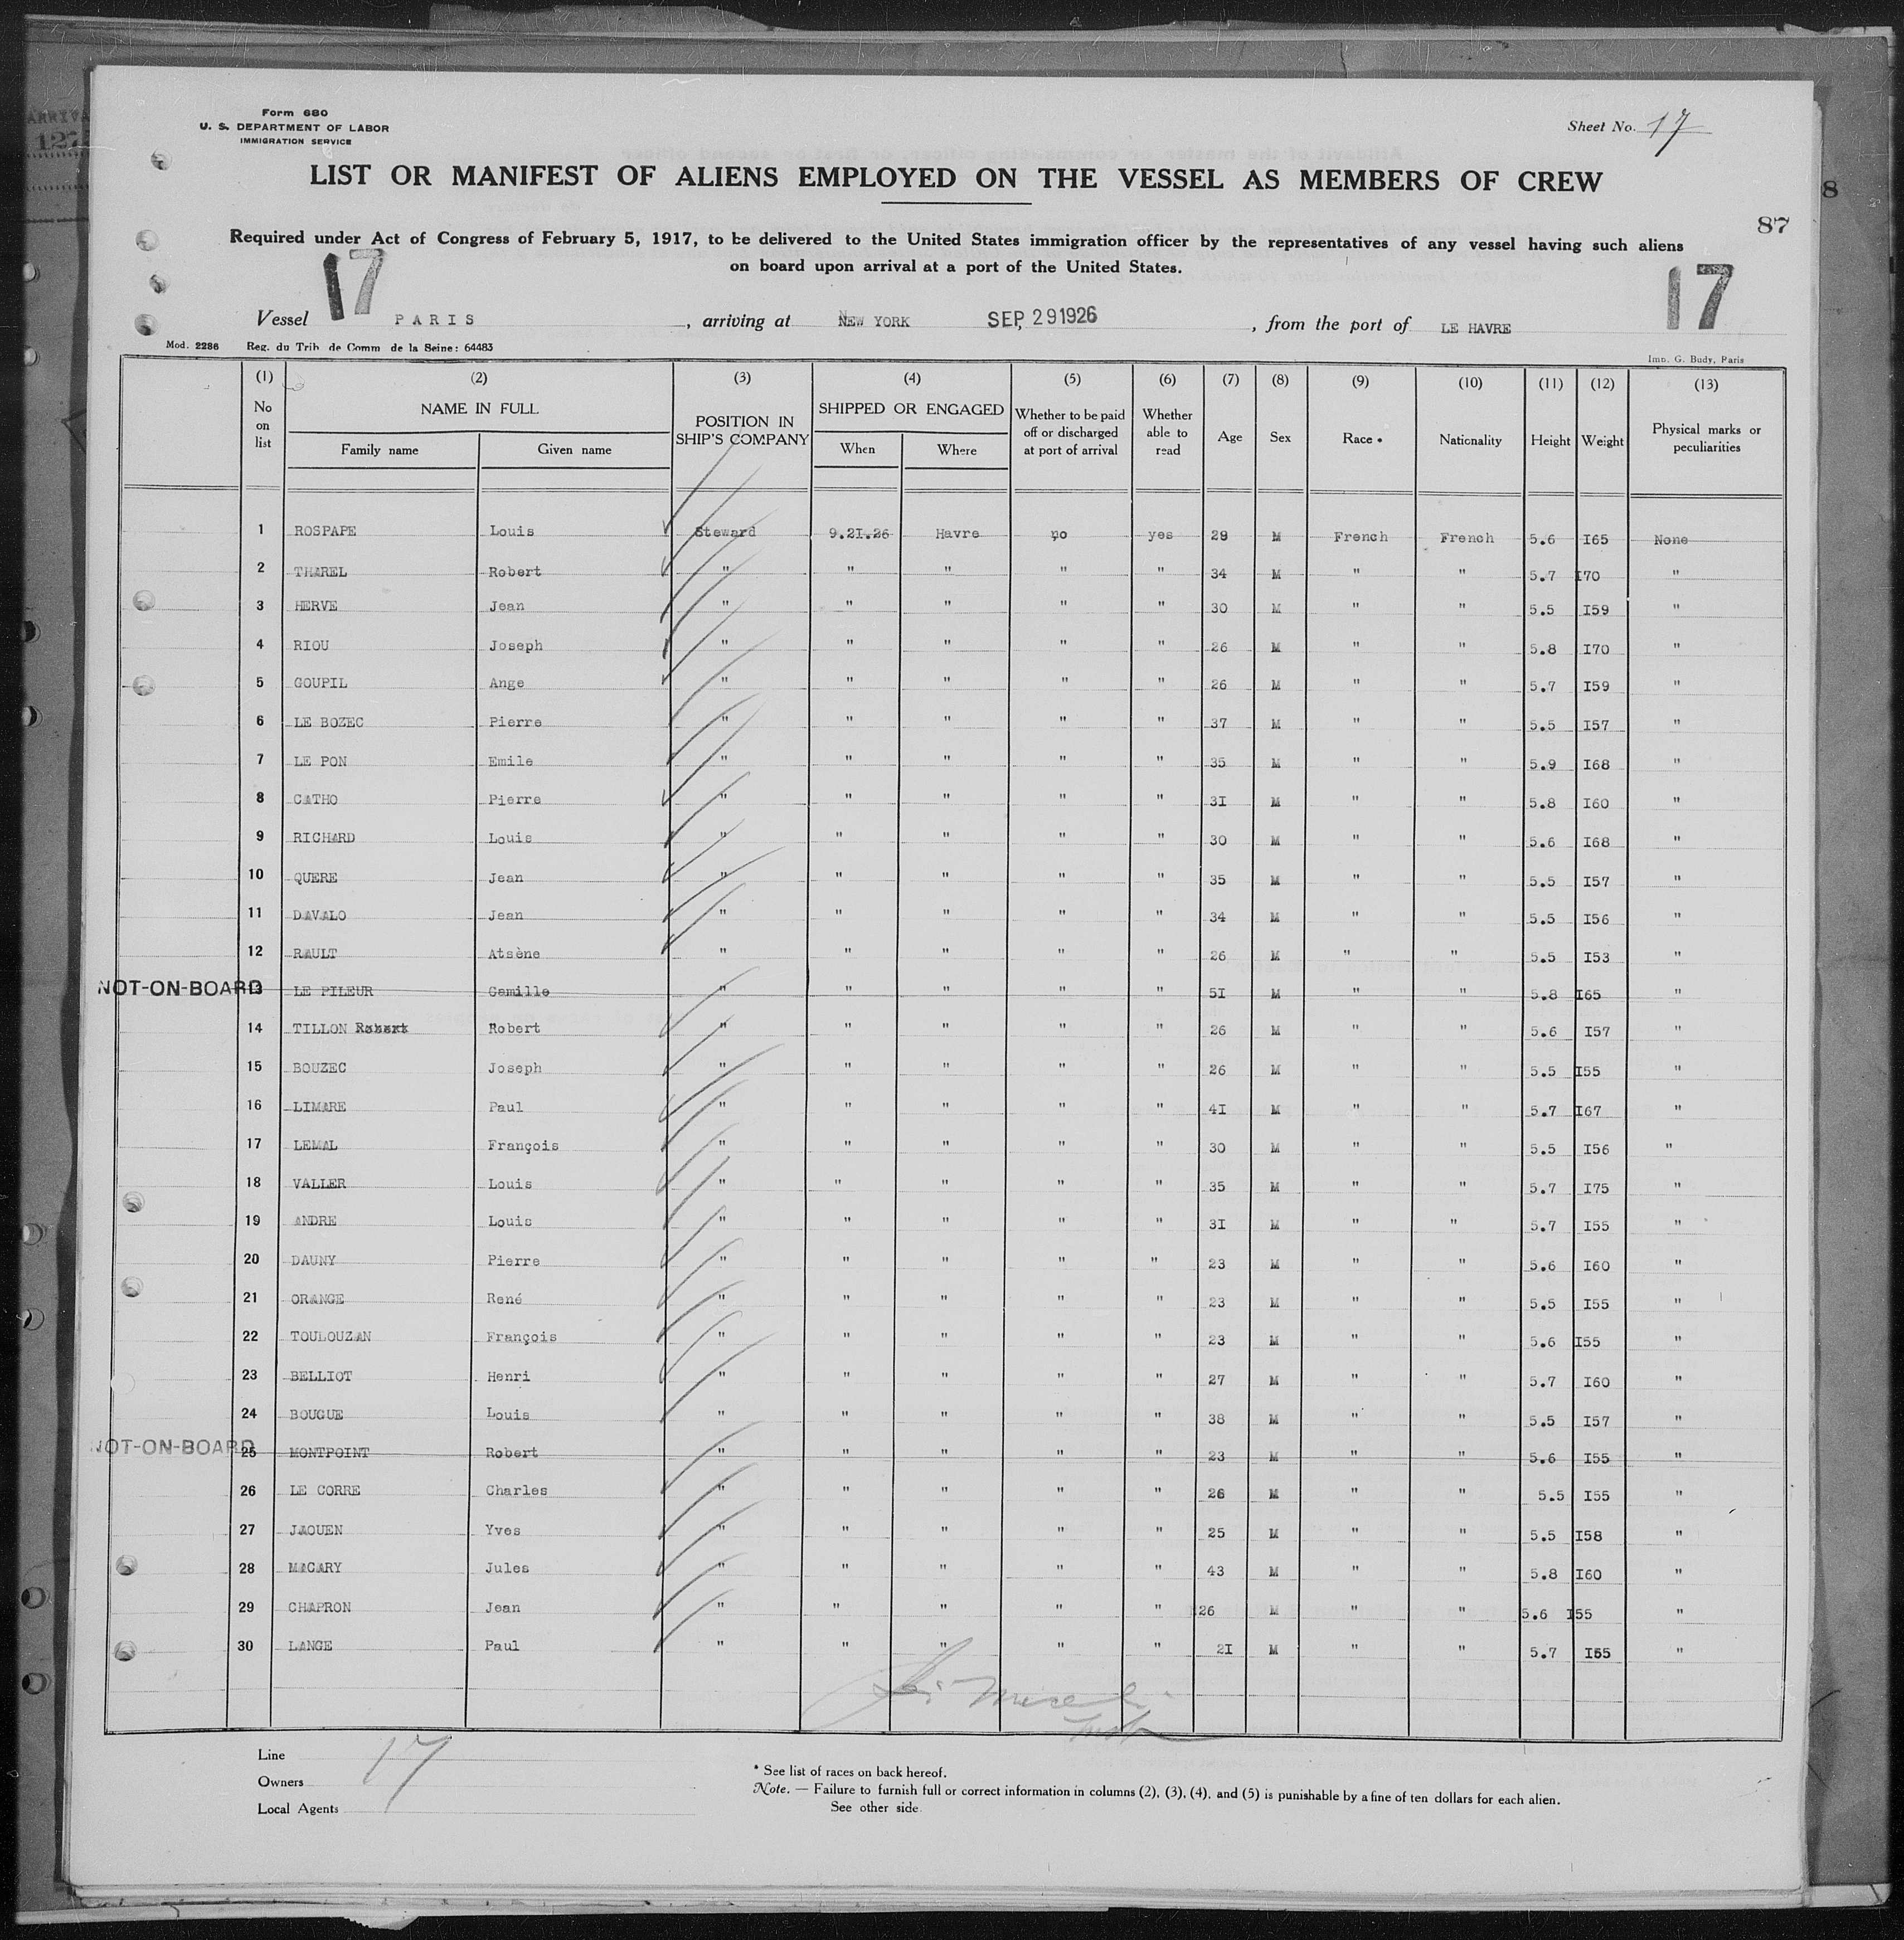 Form 680
U. S. DEPARTMENT OF LABOR
IMMIGRATION SERVICE
Sheet No. 17
LIST OR MANIFEST OF ALIENS EMPLOYED ON THE VESSEL AS MEMBERS OF CREW
87
Required under Act of Congress of February 5, 1917, to be delivered to the United States immigration officer by the representatives of any vessel having such aliens
on board upon arrival at a port of the United States.
17 17
Vessel PARIS, arriving at NEW YORK SEP, 29 1926, from the port of LE HAVRE
Mod. 2286 Reg. du Trib. de Comm de la Seine: 64483 Imp. G. Budy, Paris
(1) (2) (3) (4) (5) (6) (7) (8) (9) (10) (11) (12) (13)
No on list NAME IN FULL Family name Given name POSITION IN SHIP'S COMPANY SHIPPED OR ENGAGED When Where Whether to be paid off or discharged at port of arrival Whether able to read Age Sex Race * Nationality Height Weight Physical marks or peculiarities
1 ROSPAPE Louis Steward 9.21.26 Havre no yes 29 M French French 5.6 I65 None
2 THAREL Robert " " " " " 34 M " " 5.7 I70 "
3 HERVE Jean " " " " " 30 M " " 5.5 I59 "
4 RIOU Joseph " " " " " 26 M " " 5.8 I70 "
5 GOUPIL Ange " " " " " 26 M " " 5.7 I59 "
6 LE BOZEC Pierre " " " " " 37 M " " 5.5 I57 "
7 LE PON Emile " " " " " 35 M " " 5.9 I68 "
8 CATHO Pierre " " " " " 3I M " " 5.8 I60 "
9 RICHARD Louis " " " " " 30 M " " 5.6 I68 "
10 QUERE Jean " " " " " 35 M " " 5.5 I57 "
11 DAVALO Jean " " " " " 34 M " " 5.5 I56 "
12 RAULT Atsène " " " " " 26 M " " 5.5 I53 "
NOT-ON-BOARD 13 LE PILEUR Camille " " " " " 5I M " " 5.8 I65 "
14 TILLON Robert Robert " " " " " 26 M " " 5.6 I57 "
15 BOUZEC Joseph " " " " " 26 M " " 5.5 I55 "
16 LIMARE Paul " " " " " 4I M " " 5.7 I67 "
17 LEMAL François " " " " " 30 M " " 5.5 I56 "
18 VALLER Louis " " " " " 35 M " " 5.7 I75 "
19 ANDRE Louis " " " " " 3I M " " 5.7 I55 "
20 DAUNY Pierre " " " " " 23 M " " 5.6 I60 "
21 ORANGE René " " " " " 23 M " " 5.5 I55 "
22 TOULOUZAN François " " " " " 23 M " " 5.6 I55 "
23 BELLIOT Henri " " " " " 27 M " " 5.7 I60 "
24 BOUGUE Louis " " " " " 38 M " " 5.5 I57 "
NOT-ON-BOARD 25 MONTPOINT Robert " " " " " 23 M " " 5.6 I55 "
26 LE CORRE Charles " " " " " 26 M " " 5.5 I55 "
27 JAOUEN Yves " " " " " 25 M " " 5.5 I58 "
28 MACARY Jules " " " " " 43 M " " 5.8 I60 "
29 CHAPRON Jean " " " " " 26 M " " 5.6 I55 "
30 LANGE Paul " " " " " 2I M " " 5.7 I55 "
Line
Owners 17
Local Agents
* See list of races on back hereof.
Note. — Failure to furnish full or correct information in columns (2), (3), (4), and (5) is punishable by a fine of ten dollars for each alien.
See other side.